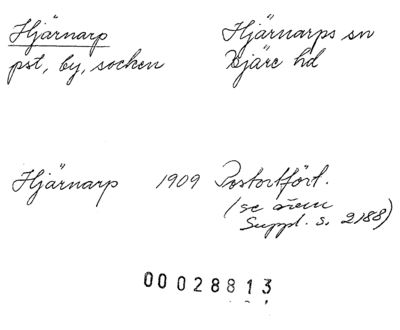 Hjärnarp
pst, by, socken
Hjärnarps sn
Bjäre hd
Hjärnarp 1909 Postortfört.
(se även
Suppl. s. 2188)
00028813